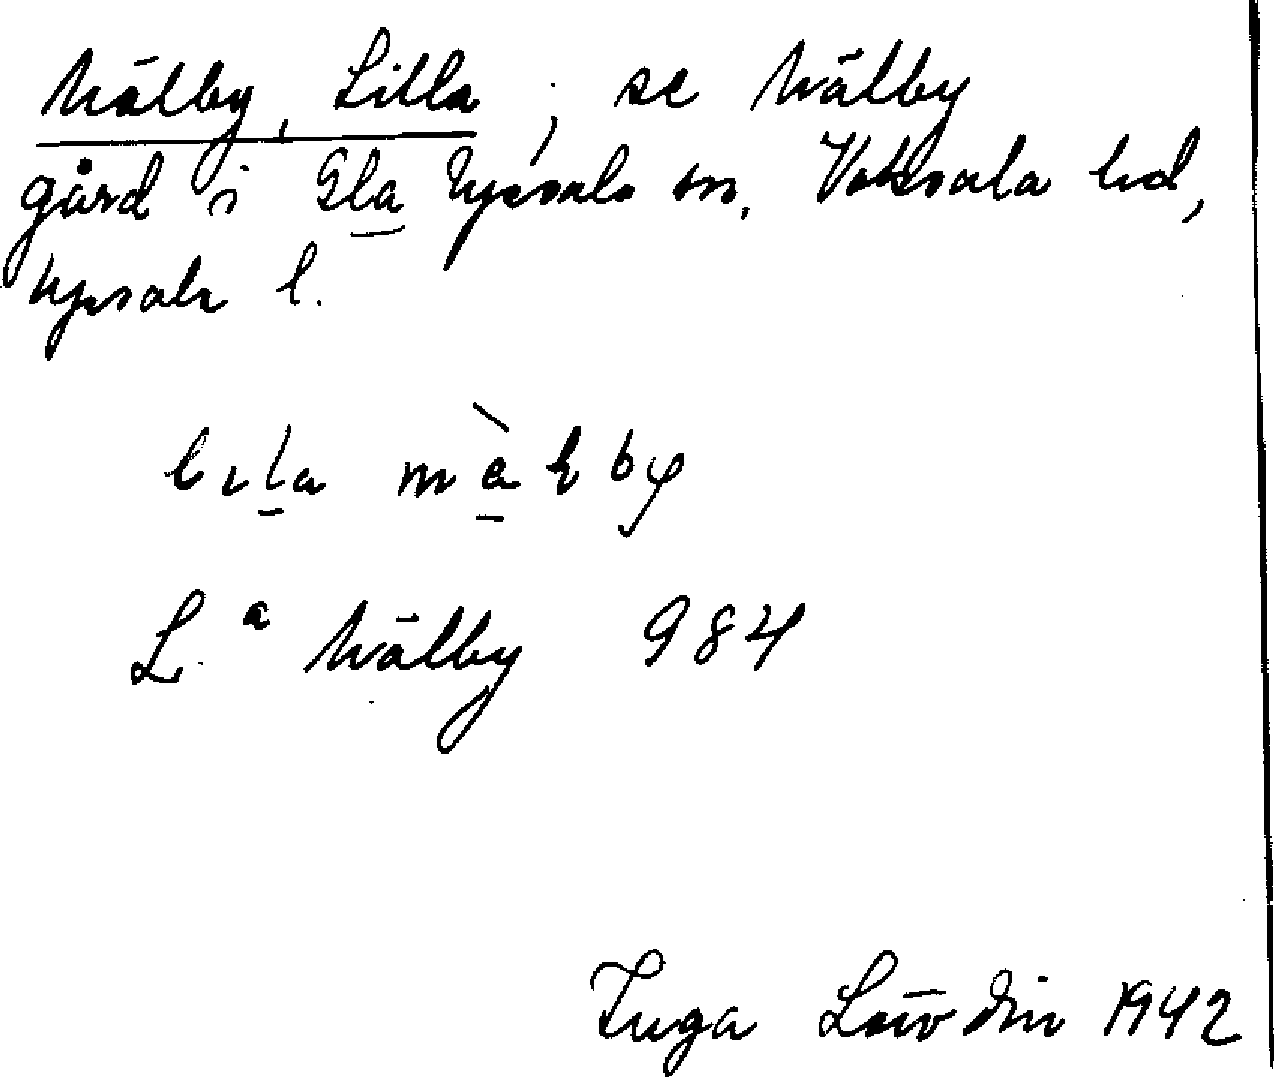 Mälby, Lilla, se Mälby
gård i Gla Uppsala sn, Vaksala hd,
Uppsala l.
lıla mälby
L.a Mälby 984
Inga Lövdin 1942